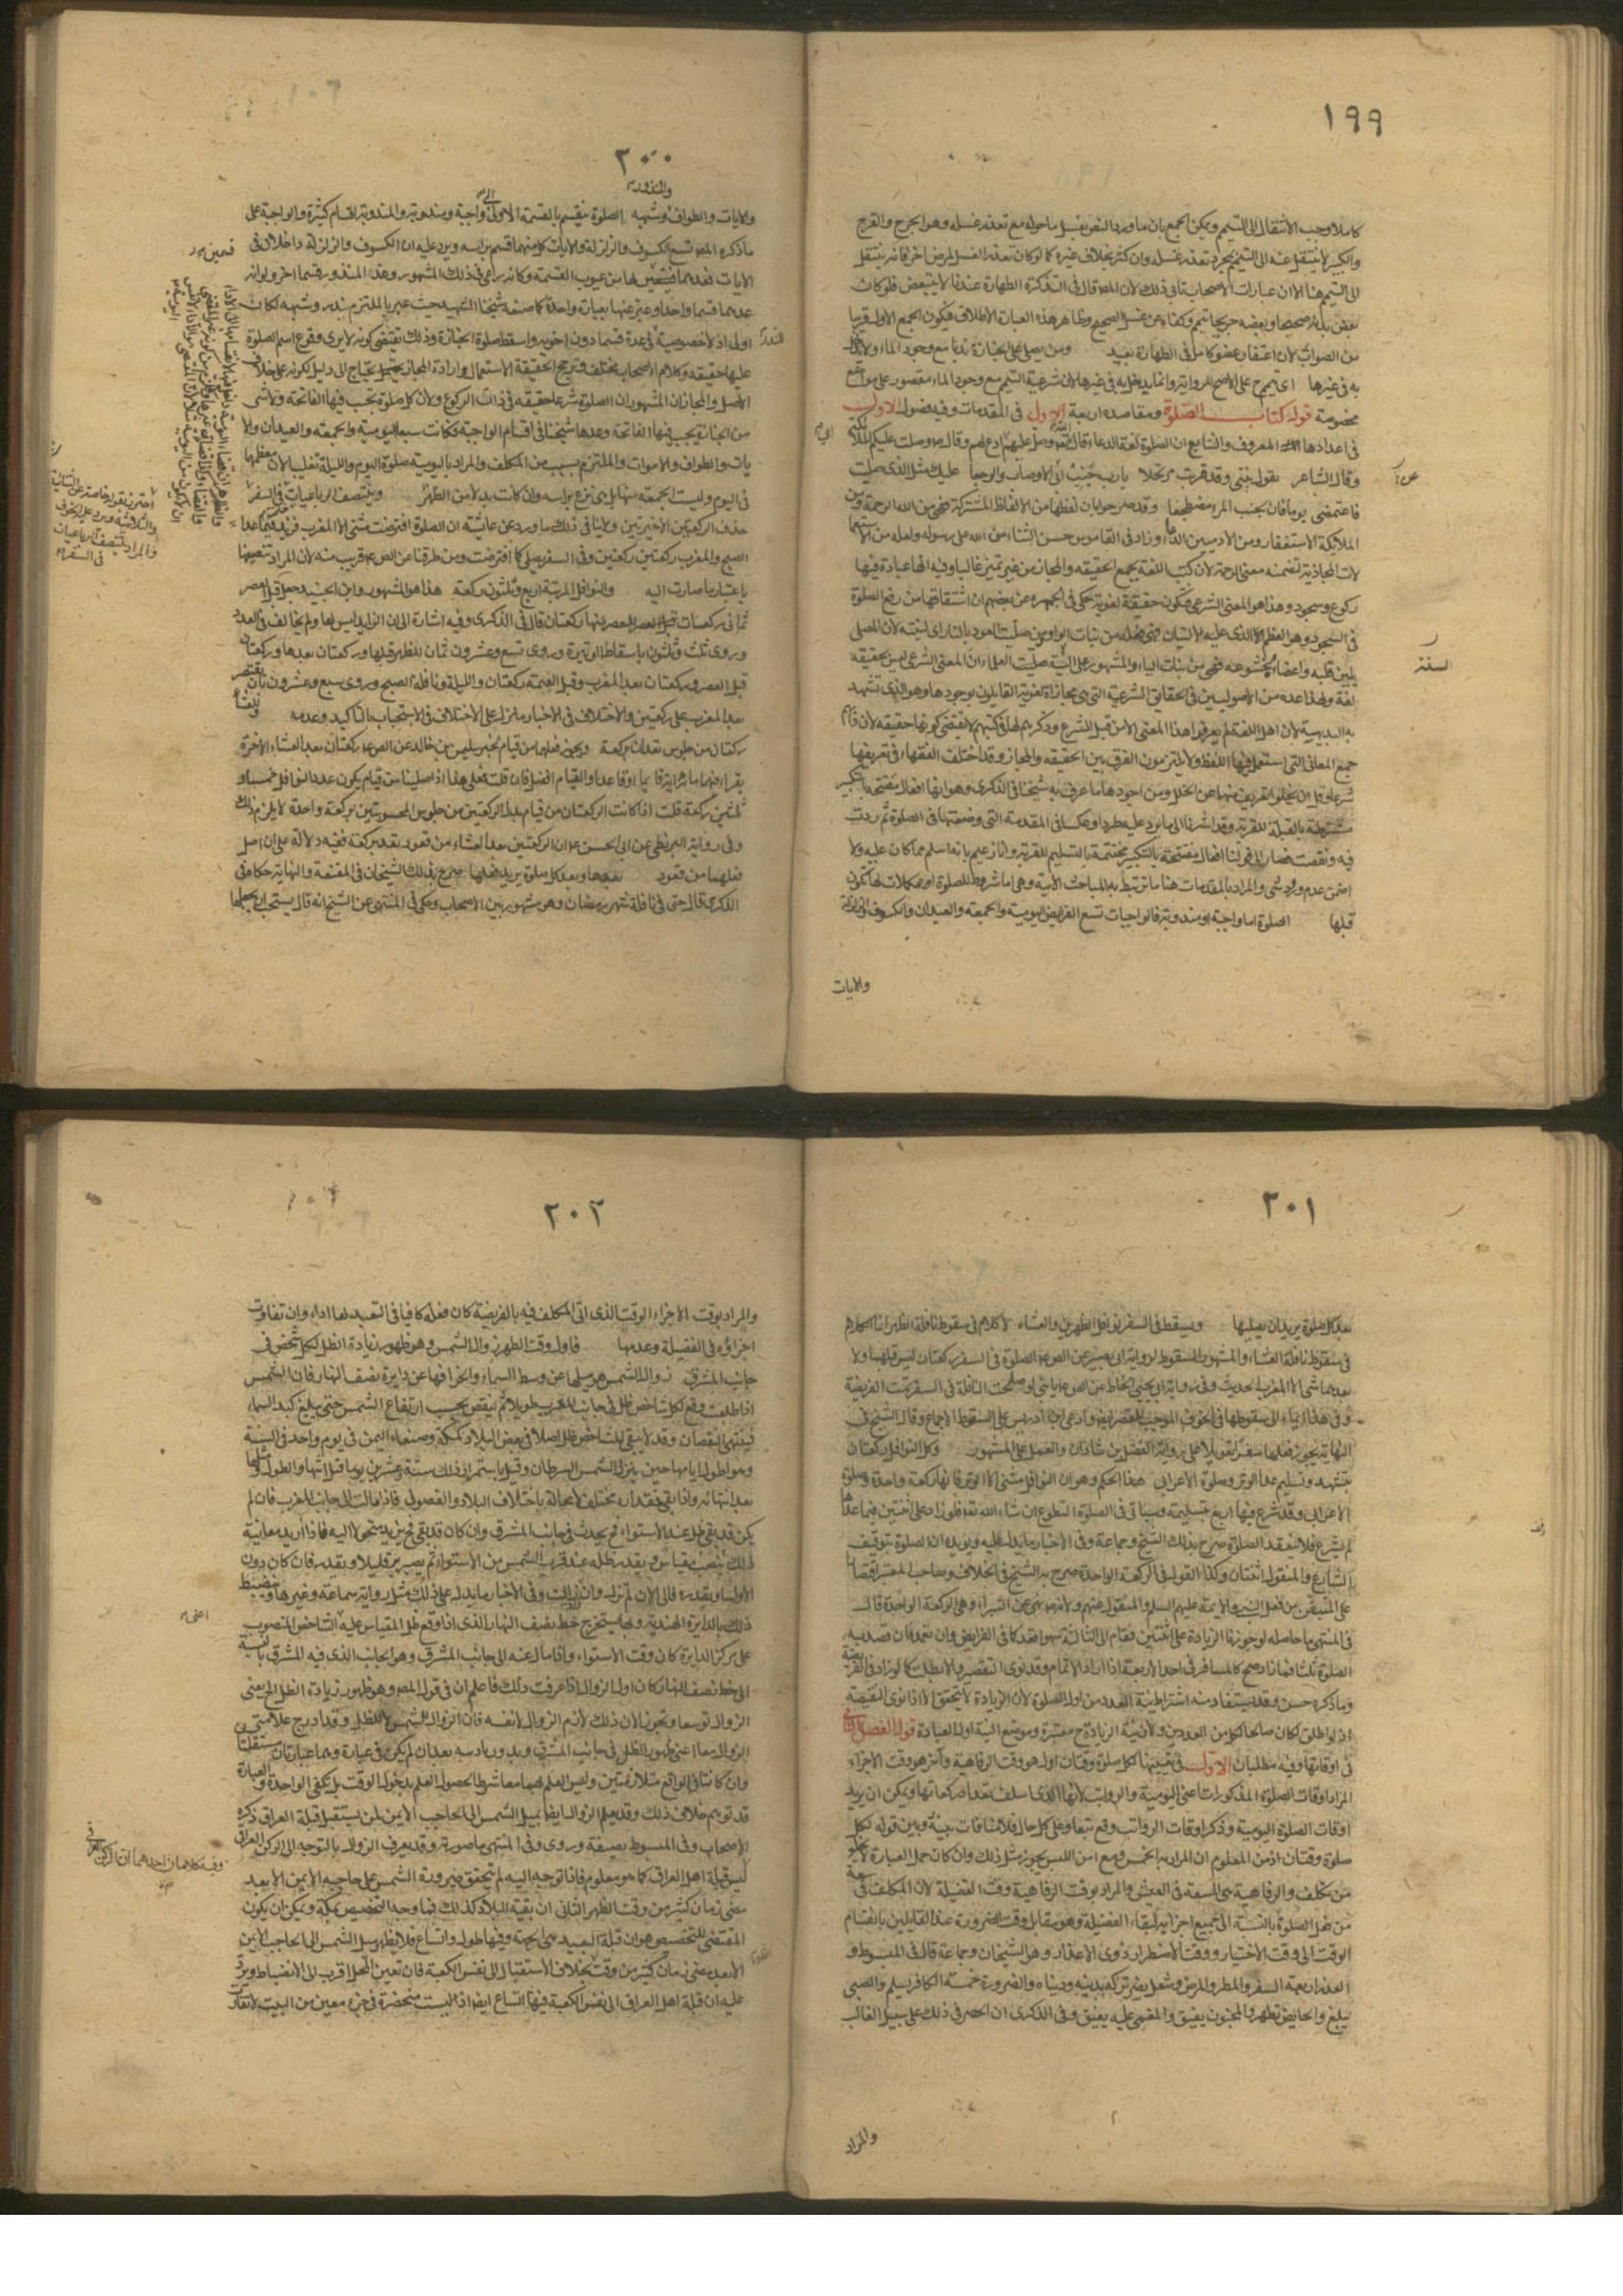 ١٩٩
كاملا وجب الانتقال الى التيمم ويمكن الجمع بان ما ورد بالنص بغسل ما حوله مع تعذر غسله وهو الجرح والقرح
والكسير لا ينتقل عنه الى التيمم بمجرد تعذر غسله وان كثر بخلاف غيره كما لو كان تعذر الغسل لمرض اخر فانه ينتقل
الى التيمم هنا الا ان عبارات الاصحاب تابى ذلك لان المص قال فى التذكرة الطهارة عندنا لا تتبعض فلو كان
بعض بدنه صحيحا وبعضه جريحا تيمم وكفاه عن غسل الصحيح وظاهر هذه العبارة الاطلاق فيكون الجمع الاول قريبا
من الصواب لان اغتفار عضو كامل فى الطهارة بعيد ومن يصلى على الجنازة ندبا مع وجود الماء ولا يدخل
به فى غيرها اى تيمم على الاصح للرواية وانما يدخل به فى غيرها لان شرعية التيمم مع وجود الماء مقصور على مواضع
مخصوصة قوله كتاب الصلوة ومقاصده اربعة الاول فى المقدمات وفيه فصول الاول
فى اعدادها المعروف والشايع ان الصلوة لغة الدعاء قال الله وصل عليهم اى ادع لهم وقال ص وصلت عليكم الملائكة
وقال الشاعر تقول بنتى وقد قربت مرتحلا يا رب جنب ابى الاوصاب والوجعا عليك مثل الذى صليت
فاغتمضى يوما فان بجنب المرء مضطجعا وقد صرحوا بان لفظها من الالفاظ المشتركة فهى من الله الرحمة ومن
الملائكة الاستغفار ومن الادميين الدعاء وزاد فى القاموس حسن الثناء من الله على رسوله ولعله من الاستعما
لات المجازية لتضمنه معنى الرحمة لان كتب اللغة يجمع الحقيقة والمجاز من غير تميز غالبا وفيه انها عبادة فيها
ركوع وسجود وهذا هو المعنى الشرعى فتكون حقيقة لغوية حكى فى الجمهرة عن بعضهم ان اشتقاقها من رفع الصلوة
فى السجود وهو العظم الذى عليه الاليتان فهى فعله من بنات الواو من صليت العود بالنار اى لينته لان المصلى
يلين قلبه واعضاءه بخشوعه فهى من بنات الياء والمشهور على السنة العلماء ان المعنى الشرعى ليس بحقيقة
لغة ولهذا عده من الاصوليين فى الحقايق الشرعية التى هى مجازاة لغوية القايلون بوجودها وهو الذى تشهد
به البديهية لان اهل اللغة لم يعرفوا هذا المعنى الا من قبل الشرع وذكرهم لها فى كتبهم لا يقتضى كونها حقيقة لان دابهم
جميع المعانى التى استعمل فيها اللفظ ولا يلتزمون الفرق بين الحقيقة والمجاز وقد اختلف الفقهاء فى تعريفها
شرعا وقل ان يخلوا تعريف منها عن الخلل ومن اجودها ما عرف به شيخنا فى الذكرى وهو انها افعال مفتتحة بالتكبير
مشترطة بالقبلة للقربة وقد اشرنا الى ما يرد عليه طردا وعكسا فى المقدمة التى وضعتها فى الصلوة ثم زدت
فيه ونقصت فصار الى قولنا افعال مفتتحة بالتكبير مختتمة بالتسليم للقربة وانا زعيم بانه اسلم مما كان عليه ولا
اضمن عدم ورود شئ والمراد بالمقدمات هنا ما ترتبط به المباحث الآتية وهى اما شروط للصلوة او مكملات لها تكون
قبلها الصلوة اما واجبة او مندوبة فالواجبات تسع الفرايض اليومية والجمعة والعيدان والكسوف والزلزلة
والايات
السنة
٢٠٠
والمنذور
والايات والطواف وشبهه الصلوة ينقسم بالقسمة الاولى الى واجبة ومندوبة والمندوبة اقسام كثيرة والواجبة على
ما ذكره المص تسع الكسوف والزلزلة والايات كلا منهما قسم براسه ويرد عليه ان الكسوف والزلزلة داخلان فى
الايات فعدهما قسمين لها من عيوب القسمة وكانه راعى فى ذلك المشهور وعد المنذور قسما اخر ولو انه
عدهما قسما واحدا وعبر عنها بعبارة واحدة كما صنعه شيخنا الشهيد حيث عبر بالملتزم بنذر وشبهه لكان
اولى اذ لا خصوصية فى عده قسما دون اخويه واسقط صلوة الجنازة وذلك يقتضى كونه لا يرى وقوع اسم الصلوة
عليها حقيقة وكلام الاصحاب مختلف وترجح الحقيقة الاستعمال وارادة المجاز تحتمل يحتاج الى دليل لكونه على خلاف
الاصل والمجاز ان المشهور ان الصلوة شرعا حقيقة فى ذات الركوع ولان كل صلوة تجب فيها الفاتحة ولا شئ
من الجنازة يجب فيها الفاتحة وعدها شيخنا فى اقسام الواجبة فكانت سبعا اليومية والجمعة والعيدان والا
يات والطواف والاموات والملتزم بسبب من المكلف والمراد باليومية صلوة اليوم والليلة تغليبا لان معظمها
فى اليوم وليست الجمعة منها بل هى نوع براسه وان كانت بدلا من الظهر وينتصف الرباعيات فى السفر
حذف الركعتين الاخيرتين ولاينا فى ذلك ما ورد عن عايشة ان الصلوة افترضت مثنى الا المغرب فزيد فيما عدا
الصبح والمغرب ركعتين ركعتين وفى السفر يصلى كما افترضت ومن طرقنا عن الص ع قريب منه لان المراد تنصيفها
باعتبار ما صارت اليه والنوافل المرتبة اربع وثلثون ركعة هذا هو المشهور وابن الجنيد جعل قبل العصر
ثمانى ركعات قبل العصر منها ركعتان قال فى الذكرى وفيه اشارة الى ان الزايد ليس لها ولم يخالف فى العدد
وروى ثلث وثلثون باسقاط الوتيرة وروى تسع وعشرون ثمان للظهر قبلها وركعتان بعدها وركعتان
قبل العصر وركعتان بعد المغرب وقبل العتمة ركعتان والليلة ونافلة الصبح وروى سبع وعشرون بان يقتصر
بعد المغرب على ركعتين والاختلاف فى الاخبار منزل على الاختلاف فى الاستحباب بالتاكيد وعدمه وللعشاء
ركعتان من جلوس تعدان بركعة ويجوز فعلهما من قيام لخبر سليمن بن خالد عن الص ع ركعتان بعد العشاء الاخرة
يقرا فيهما مائة اية قائما او قاعدا والقيام افضل فان قلت فعلى هذا اذا صليتا من قيام يكون عدد النوافل خمسا و
ثلثين ركعة قلت اذا كانت الركعتان من قيام بدل الركعتين من جلوس المحسوبتين بركعة واحدة لا يلزم ذلك
وفى رواية البزنطى عن ابى الحسن ع ان الركعتين بعد العشاء من قعود تعد بركعة ففيه دلالة على ان اصل
فعلهما من قعود بعدها وبعد كل صلوة يريد فعلها صرح بذلك الشيخان فى المقنعة والنهاية حكاه فى
الذكرى قال حتى فى نافلة شهر رمضان وهو مشهور بين الاصحاب وحكى فى المنتهى عن الشيخ انه قال يستحب ان يجعلها
قسمين
احترز بقوله خاصة عن الثنائية
والثلاثية ويرد عليه الخوف
والمراد تنتصف الرباعيات
فى السفر
٢٠١
بعد كل صلوة يريد ان يصليها ويسقط فى السفر نوافل الظهرين والعشاء لا كلام فى سقوط نافلة الظهرين انما الكلام
فى سقوط نافلة العشاء والمشهور السقوط لرواية ابى بصير عن الص ع الصلوة فى السفر ركعتان ليس قبلهما ولا
بعدهما شئ الا المغرب الحديث وفى رواية ابى يحيى الحناط عن الص ع يا بنى لو صلحت النافلة فى السفر تمت الفريضة
وفى هذا ايماء الى سقوطها فى الخوف الموجب للقصر ايضا وادعى ابن ادريس على السقوط الاجماع وقال الشيخ فى
النهاية يجوز فعلها سفرا تعويلا على رواية الفضل بن شاذان والعمل على المشهور وكل النوافل ركعتان
بتشهد وتسليم عدا الوتر وصلوة الاعرابى هذا الحكم وهو ان النوافل مثنى الا الوتر فانها ركعة واحدة وصلوة
الاعرابى وقد شرع فيها اربع بتسليمة وسياتى فى الصلوة التطوع ان شاء الله تعا فلو زاد على اثنتين فيما عداها
لم يشرع فلا تنعقد الصلوة صرح بذلك الشيخ وجماعة وفى الاخبار ما يدل عليه ويؤيده ان الصلوة بتوقيف
الشارع والمنقول اثنتان وكذا القول فى الركعة الواحدة صرح به الشيخ فى الخلاف وصاحب المعتبر اقتصارا
على المتيقن من فعل النبى والايمة عليهم السلم والمنقول عنهم ولانه ص نهى عن البتراء وهى الركعة الواحدة قال
فى المنتهى ما حاصله لو جوزنا الزيادة على اثنتين فقام الى الثالثة سهوا قعد كما فى الفرايض وان تعمد فان قصد به
الصلوة ثلثا فما زاد صح كالمسافر فى احد الاربعة اذا اراد الاتمام وقد نوى التقصير والا بطلت كما لو زاد فى الفريضة
وما ذكره حسن وقد يستفاد منه اشتراط نية العدد من اول الصلوة لان الزيادة لا تحقق الا اذا نوى النقيصة
اذ لو اطلق لكان صالحا لكل من العددين ولان نية الزيادة ح معتبرة وموضع النية اول العبادة قوله الفصل الثانى
فى اوقاتها وفيه مطلبان الاول فى تعيينها لكل صلوة وقتان اول هو وقت الرفاهية وآخر هو وقت الاجزاء
المراد اوقات الصلوة المذكورات اعنى اليومية والرواتب لانها الذى اسلف تعداد ركعاتها ويمكن ان يريد
اوقات الصلوة اليومية وذكر اوقات الرواتب وقع تبعا وعلى كل حال فلا منافات بينه وبين قوله لكل
صلوة وقتان اذ من المعلوم ان المراد به الخمس ومع امن اللبس يجوز مثل ذلك وان كان حمل العبارة لا يخلو
من تكلف والرفاهية هى السعة فى العيش والمراد بوقت الرفاهية وقت الفضيلة لان المكلف فى سعة
من فعل الصلوة بالنسبة الى جميع اجزائه لبقاء الفضيلة وهو مقابل وقت الضرورة عند القايلين بانقسام
الوقت الى وقت الاختيار ووقت الاضطرار ذوى الاعذار وهو الشيخان وجماعة قال فى المبسوط و
العذر اربعة السفر والمطر والمرض وشغل يضر تركه بدينه ودنياه والضرورة خمسة الكافر يسلم والصبى
يبلغ والحايض تطهر والمجنون يفيق والمغمى عليه يفيق وفى الذكرى ان الحصر فى ذلك على سبيل الغالب
والمراد
٢٠٢
والمراد بوقت الاجزاء الوقت الذى اتى المكلف فيه بالفريضة كان فعله كافيا فى التعبد لها اداء وان تفاوت
اجزاؤه فى الفضيلة وعدمها فاول وقت الظهر زوال الشمس وهو ظهور زيادة الظل لكل شخص فى
جانب المشرق زوال الشمس هو ميلها عن وسط السماء وانحرافها عن دايرة نصف النهار فان الشمس
اذا طلعت وقع لكل شاخص ظل فى جانب المغرب طويلا ثم ينقص بحسب ارتفاع الشمس حتى يبلغ كبد السماء
فينتهى النقصان وقد لا يبقى للشاخص ظل اصلا فى بعض البلاد كمكة وصنعاء اليمن فى يوم واحد فى السنة
وهو اطول ايامها حين ينزل الشمس السرطان وقيل باستمرار ذلك ستة وعشرين يوما قبل انتهاء الطول ومثلها
بعد انتهائه واذا بقى فمقداره مختلف لا محالة باختلاف البلاد والفصول فاذا مالت الى جانب المغرب فان لم
يكن قد بقى ظل عند الاستواء ح يحدث فى جانب المشرق وان كان قد بقى ح يزيد متحولا اليه فاذا اريد معاينة
ذلك ينصب مقياس ويقدر ظله عند قرب الشمس من الاستواء ثم يصبر قليلا ويقدر فان كان دون
الاول او بقدره فالى الآن لم تزل وان زاد زالت وفى الاخبار ما يدل على ذلك مثل رواية سماعة وغيرها وينضبط
ذلك بالدايرة الهندية وبها يستخرج خط نصف النهار الذى اذا وقع ظل المقياس عليه الشاخص المنصوب
على مركز الدايرة كان وقت الاستواء واذا مال عنه الى جانب المشرق وهو الجانب الذى فيه المشرق بالنسبة
الى خط نصف النهار كان اول الزوال اذا عرفت ذلك فاعلم ان فى قول المص وهو ظهور زيادة الظل الى معنى
الزوال توسعا وتجوزا لان ذلك لازم الزوال لا نفسه فان الزوال للشمس لا للظل وقد ادرج علامتى
الزوال معا اعنى ظهور الظل فى جانب المشرق وبدو زيادته بعد ان لم يكن فى عبارة وهما عبارتان مستقلتا
وان كانتا فى الواقع متلازمتين وليس العلم بهما معا شرطا لحصول العلم بدخول الوقت بل تكفى الواحدة والعبارة
قد توهم خلاف ذلك وقد يعلم الزوال ايضا بميل الشمس الى الحاجب الايمن لمن يستقبل قبلة العراق ذكره
الاصحاب وفى المبسوط بصيغة وروى وفى المنتهى ما صورته وقد يعرف الزوال بالتوجه الى الركن العراقى
ليس قبلة اهل العراق كما هو معلوم فاذا توجه اليه لم تتحقق صيرورة الشمس على حاجبه الايمن الا بعد
مضى زمان كثير من وقت الظهر الثانى ان بقية البلاد كذلك فما وجه التخصيص بمكة ويمكن ان يكون
المقتضى للتخصيص هو ان قبلة البعيد هى الجهة وفيها طول واتساع فلا يظهر ميل الشمس الى الحاجب الايمن
الا بعد مضى زمان كثير من وقت بخلاف الاستقبال الى نفس الكعبة فان تعين المحل اقرب الى الانضباط ويرد
عليه ان قبلة اهل العراق الى نفس الكعبة فيها اتساع ايضا اذ ليست منحصرة فى جزء معين من البيت لا تفاوت
وفيه كلامان احدهما ان الركن العراقى